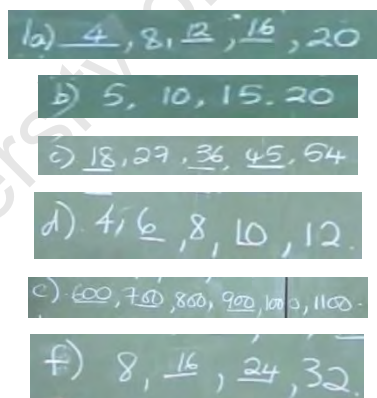 1a) 4, 8, 12, 16, 20
b) 5, 10, 15. 20
c) 18, 27, 36, 45, 54
d). 4, 6, 8, 10, 12.
e). 600, 700, 800, 900, 1000, 1100.
f) 8, 16, 24, 32.